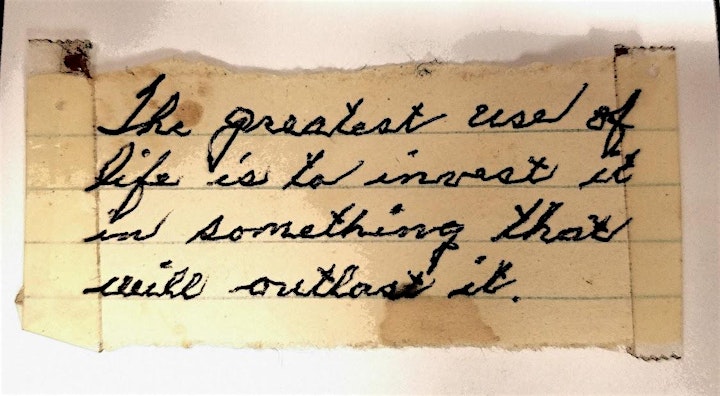 The greatest use of
life is to invest it
in something that
will outlast it.